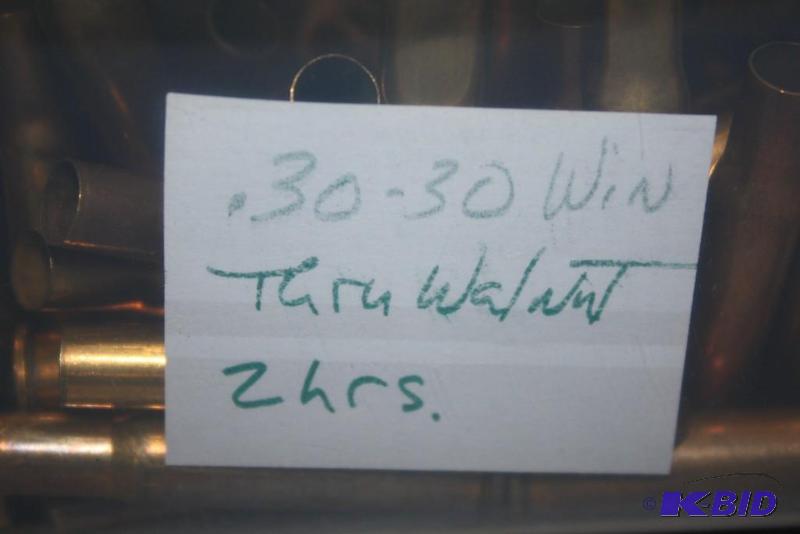 .30-30 Win
Thru Walnut
2 hrs.
© K-BID